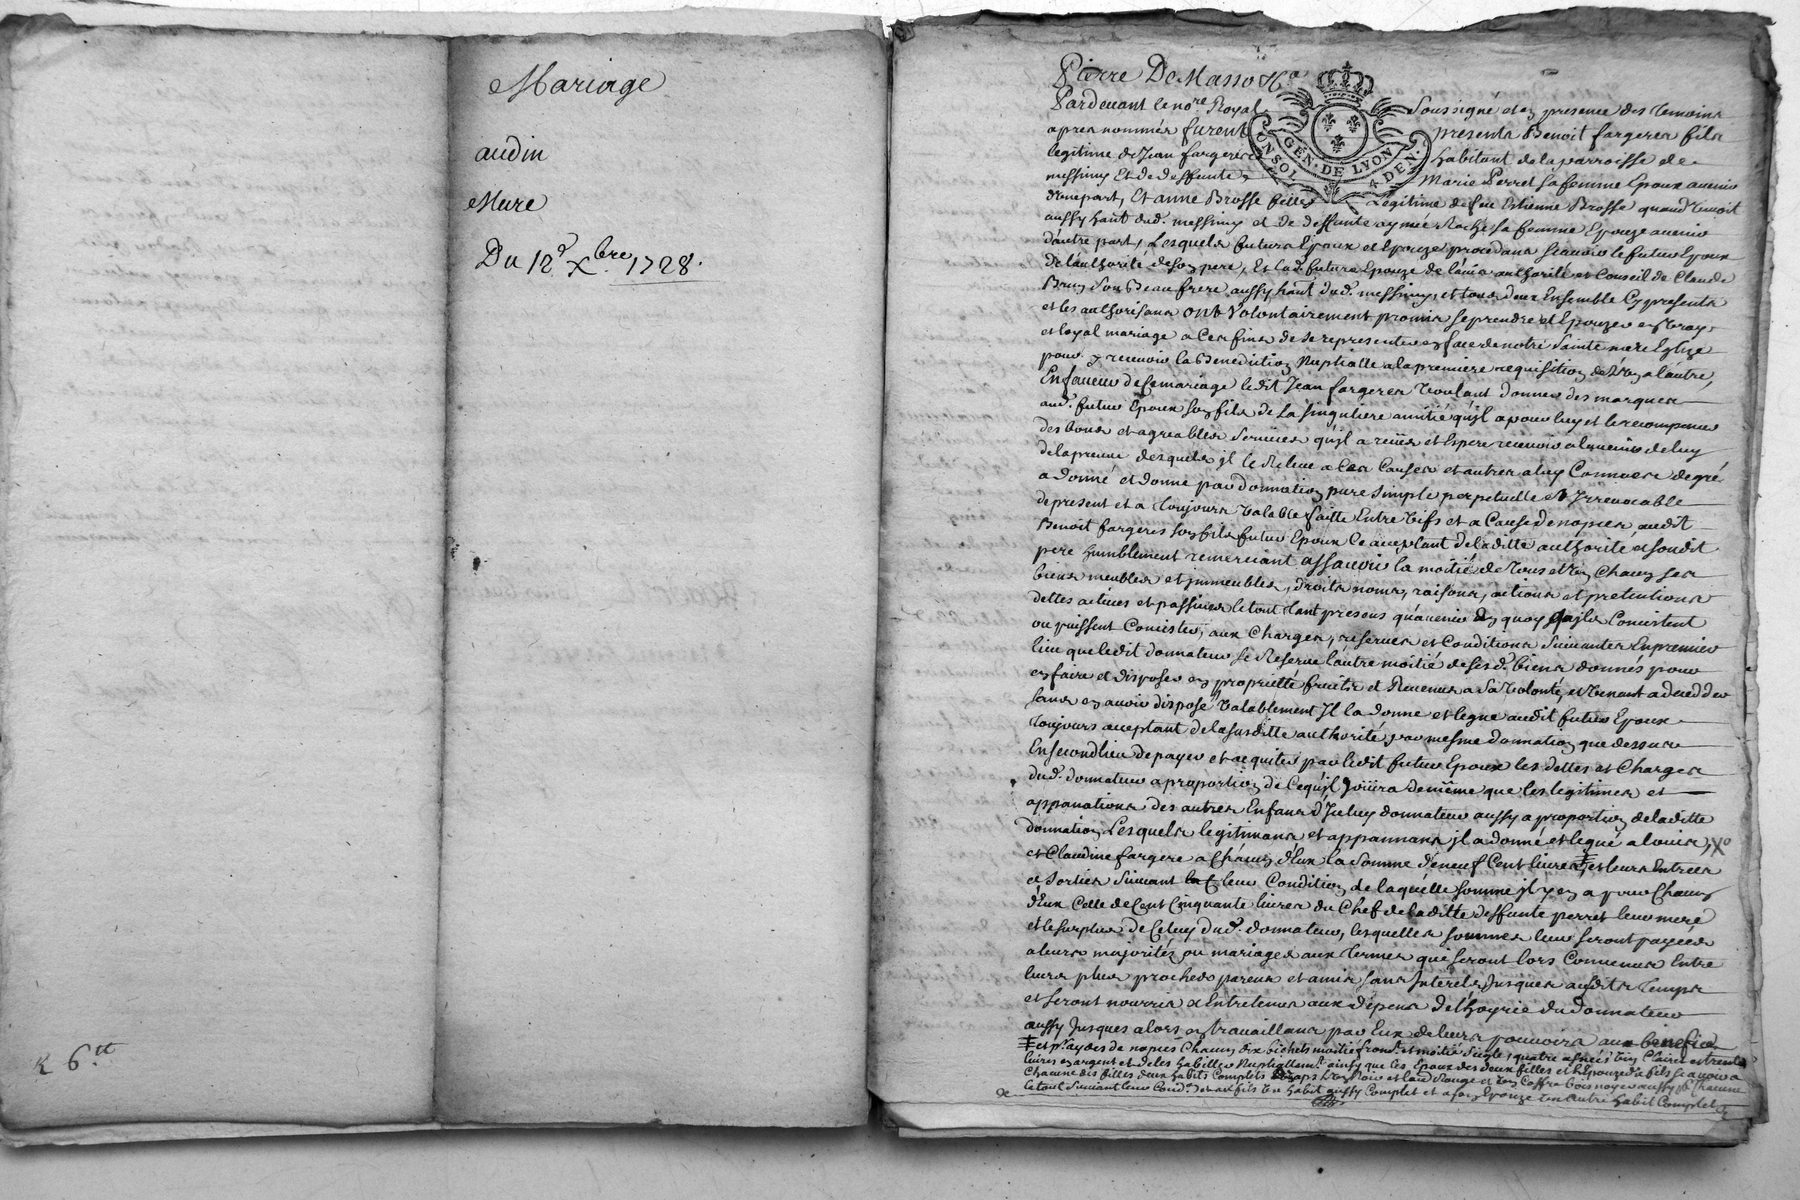 Mariage
audin
Mure
Du 12.e Xbre. 1728.
R 6.tt
Pierre De Masso &c.a
Pardevant le no.re Royal Soussigné et en presence des temoins
apres nommés furent presents Benoit fargeres fils
legitime de Jean fargeres habitant de la parroisse de
messimy Et de deffunte Marie Perret sa femme Epoux avenir
d'une part, Et anne Brosse fille Legitime de feu Estienne Brosse quand vivoit
aussy habt. dud. messimy et de deffunte aymée Roche sa femme Epouze avenir
d'autre part, Lesquels futurs Epoux et Epouze procedans sçavoir le futur Epoux
de l'authorité de son pere, Et lad. future Epouze de l'avis authorité et Conseil de Claude
Brun son Beaufrere aussy habt. dud. messimy, et tous deux Ensemble Cy presents
et les authorisans ont volontairement promis se prendre et Epouzer en vray
et loyal mariage a Ces fins de se representer en face de notre Sainte mere Eglize
pour y recevoir la Benediction Nuptialle a la premiere requisition de l'un a l'autre,
En faveur de Ce mariage ledit Jean fargeres voulant donner des marques
aud. futur Epoux son fils de La singuliere amitié qu'il a pour luy et le recompenser
des bons et agreables services qu'il a reçus et Espere recevoir a l'avenir de luy
de la preuve desquels il le Releve a Ces Causes et autres a luy Connues de gré
a donné et donne par donnation pure simple perpetuelle et Irrevocable
de present et a toujours valable faitte Entre vifs et a Cause de nopces audit
Benoit fargeres son fils futur Epoux Ce acceptant de laditte authorité et sondit
pere humblement remerciant assavoir la moitié de tous et un Chacun ses
biens meubles et immeubles, droits noms, raisons, actions et pretentions
dettes actives et passives le tout tant presens qu'avenir En quoy qu'ils Consistent
ou puissent Consister, aux Charges, reserves et Conditions Suivantes En premier
lieu que ledit donnateur Se Reserve l'autre moitié de sesd. biens donnés pour
en faire et disposer en proprietté fruits et Revenus a Sa volonté, et venant a decedder
sans en avoir disposé valablement Il la donne et legue audit futur Epoux
toujours acceptant de la susditte authorité par mesme donnation que dessus
En second lieu de payer et acquiter par ledit futur Epoux les dettes et Charges
dud. donnateur a proportion de Ce qu'il Jouira de meme que les legitimes et
appanations des autres Enfans d'Iceluy donnateur aussy a proportion de laditte
donnation, Lesquels legitimans et appannans il a donné et legué a louis,
et Claudine fargere a Chacun d'Eux la Somme de neuf Cent livres, et leurs Entrées
et Sorties Suivant leur Condition de laquelle somme il y en a pour Chacun
d'Eux Celle de Cent Cinquante livres du Chef de laditte deffunte perret leur mere
et le surplus de Celuy dud. donnateur, lesquelles sommes leur seront payées
a leurs majorités ou mariages aux termes qui seront lors Convenus Entre
leurs plus proches parens et amis sans Interets Jusques audits temps
et seront nourris et Entretenus aux depens de l'hoyrie du donnateur
aussy Jusques alors en travaillans par Eux de leurs pouvoirs au benefice
et p.r aydes de nopces Chacun dix bichets moitié froment et moitié Siegle, quatre un Claire et trente
livres en argent et de les habiller Nuptiallemt. ainsy que les Epoux des deux filles et l'Epouze du fils sçavoir a
Chacune des filles deux habits Complets et un Coffre bois noyer aussy a Chacune
le tout Suivant leur Cond.on et au fils un habit aussy Complet et a son Epouze un autre habit Complet